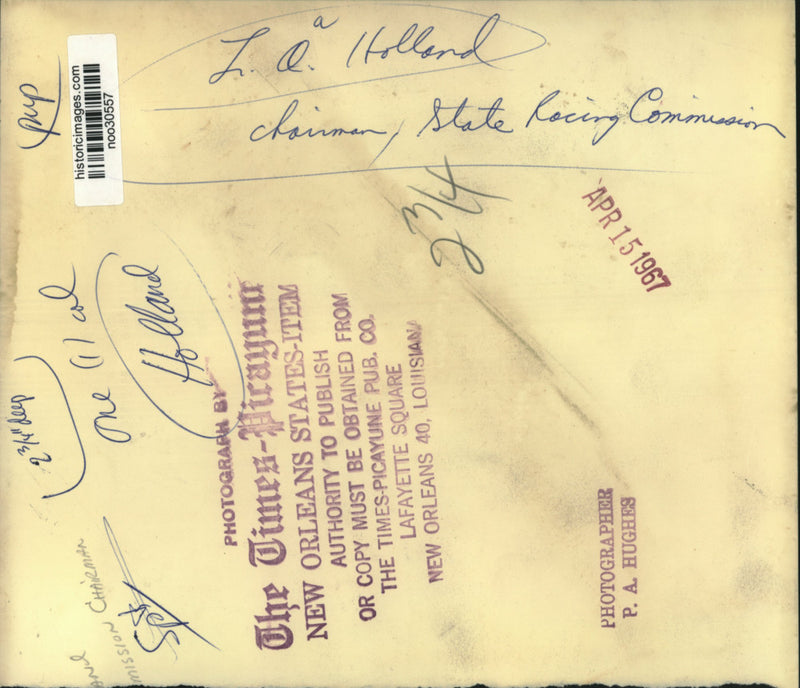 L. Q. Holland
a
chairman, State Racing Commission
historicimages.com
noo30557
2 3/4
APR 15 1967
one (1) col
Holland
2 3/4" deep
PHOTOGRAPH BY
The Times-Picayune
NEW ORLEANS STATES-ITEM
AUTHORITY TO PUBLISH
OR COPY MUST BE OBTAINED FROM
THE TIMES-PICAYUNE PUB. CO.
LAFAYETTE SQUARE
NEW ORLEANS 40, LOUISIANA
PHOTOGRAPHER
P. A. HUGHES
AND
MISSION CHAIRMAN